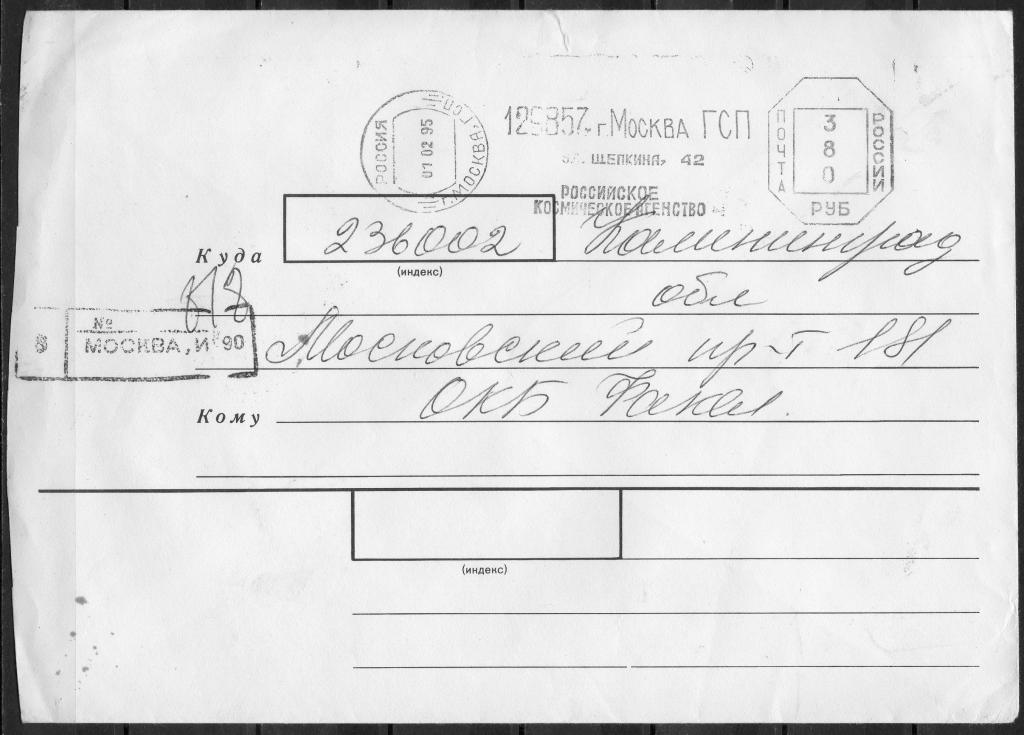 РОССИЯ 01 02 95 г. МОСКВА, ГСП
129857, г. МОСКВА ГСП
УЛ. ЩЕПКИНА, 42
РОССИЙСКОЕ
КОСМИЧЕСКОЕ АГЕНСТВО
ПОЧТА 380 РОССИИ
РУБ
Куда 236002 Калининград
(индекс)
обл
№
МОСКВА, И 90
Московский пр-т 181
Кому ОКБ Факел.
(индекс)